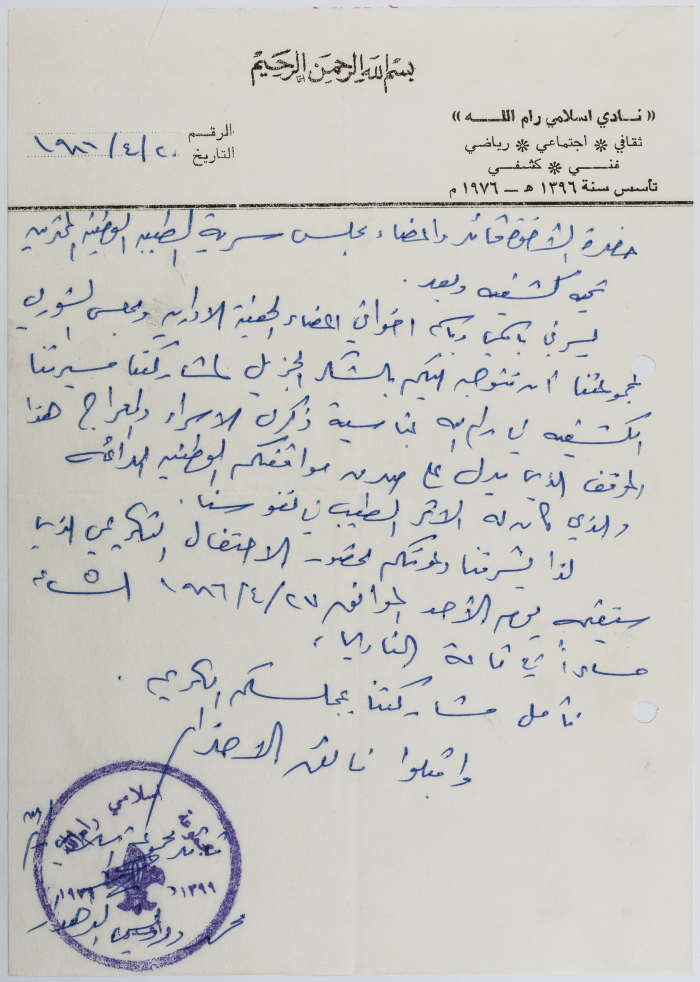 بسم الله الرحمن الرحيم
« نادي اسلامي رام الله »
ثقافي * اجتماعي * رياضي
فني * كشفي
تأسس سنة ١٣٩٦ هـ – ١٩٧٦ م
الرقم
التاريخ ١٩٨٦/٤/٢٠
حضرة قائد واعضاء مجلس سرية الوطنية المحترمين
تحية كشفية وبعد .
يسرني باسمي وباسم اخواني اعضاء الهيئة الادارية ومجلس الشورى
لمجموعتنا ان نتوجه اليكم بالشكر الجزيل لمشاركتنا مسيرتنا
الكشفية في رام الله بمناسبة ذكرى الاسراء والمعراج هذا
الموقف الذي يدل على صدق مواقفكم الوطنية الدائمة
والذي كان له الاثر الطيب في نفوسنا .
لذا يشرفنا دعوتكم لحضور الاحتفال التكريمي الذي
سنقيمه يوم الأحد الموافق ١٩٨٦/٤/٢٧ الساعة ٥
مساءاً في قاعة النادي ،
نأمل مشاركتنا بمجلسكم الكريم .
واقبلوا فائق الاحترام
مجموعة اسلامي رام الله
قائد مجموعة اسلامي رام الله
١٣٩٩
محمد